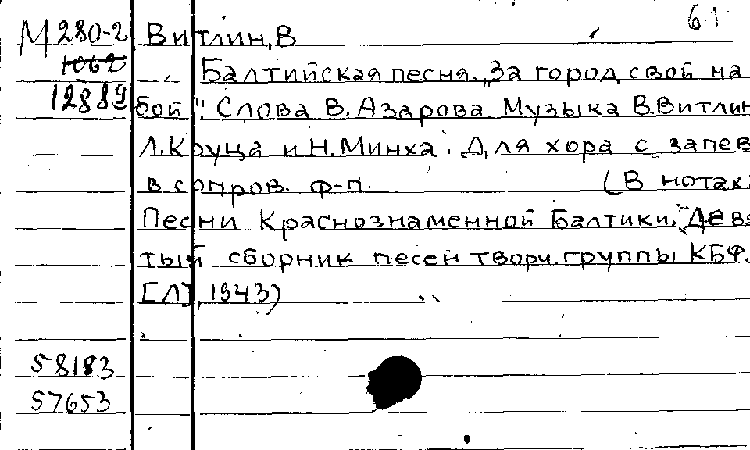 61
М 280-2 Витлин, В
1062
Балтийская песня. "За город свой на
12889 бой". Слова В. Азарова Музыка В. Витлин
Л. Круца и Н. Минха. Для хора с запев
в сопров. ф-п. (В нотах:
Песни Краснознаменной Балтики. Девя
тый сборник песен творч. группы КБФ.
[Л], 1943)
58183
57653